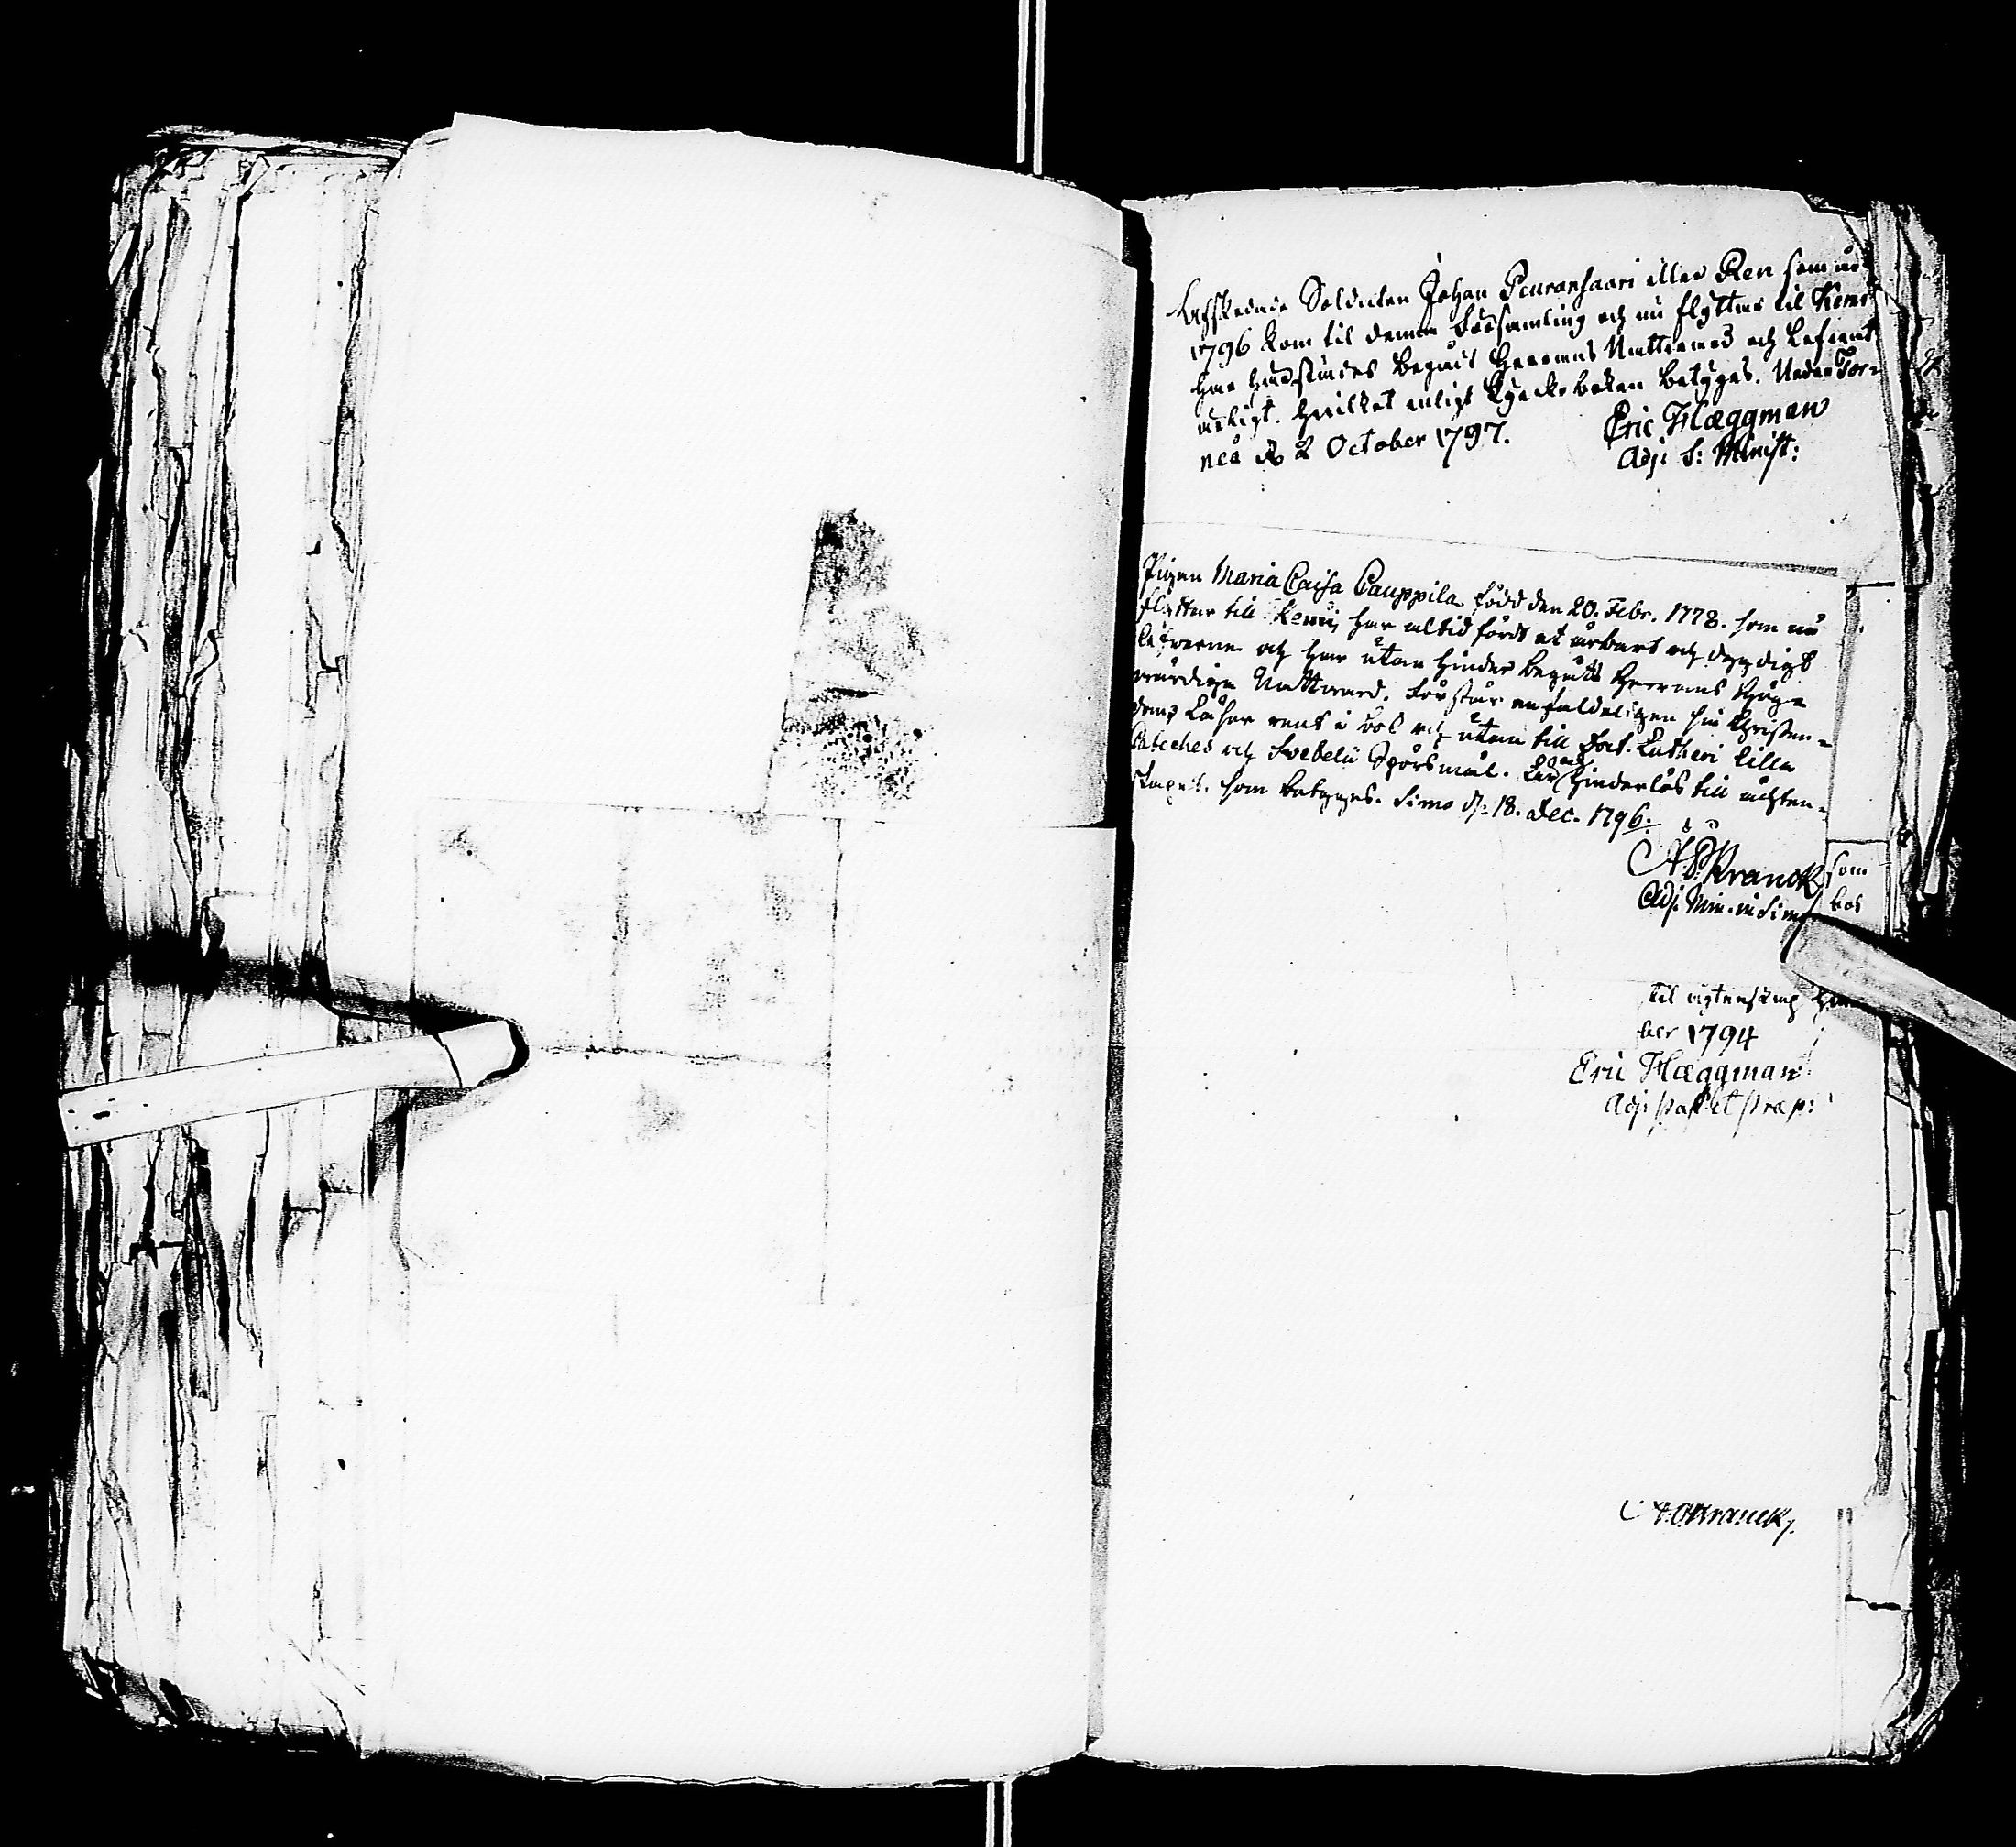 Afskedade Soldaten Johan Peuransaari eller Ren som år
1796 kom til denna Församling och nu flyttar til Kemi
har hindslöst begådt Herrans Nattvard och lefvat
ärligt. Hvilket enligt Kyrckoboken betygas. Neder Tor-
neå d. 2 October 1797.
Eric Häggman
Adj: S: Minist:
Pigan Maria Caisa Cauppila född den 20. Febr. 1778. som nu
flyttar till Kemi, har altid fördt et ärbart och dygdigt
lefverne och har utan hinder begådt Herrans Högv-
värdiga Nattvard. Förstår enfaldeligen sin Christen-
dom, Läser rent i bok och utan till Doct. Lutheri lilla
Cateches och Svebelii Spörsmål. Är och hinderlös till ächten-
skapet. som betyges. Simo d: 18. Dec. 1796:
A. O. Kranck
Adj. Min. in Simo
som
bos
til ägtenskap
ber 1794
Eric Häggman
Adj: past: et præp:
A. O. Kranck.